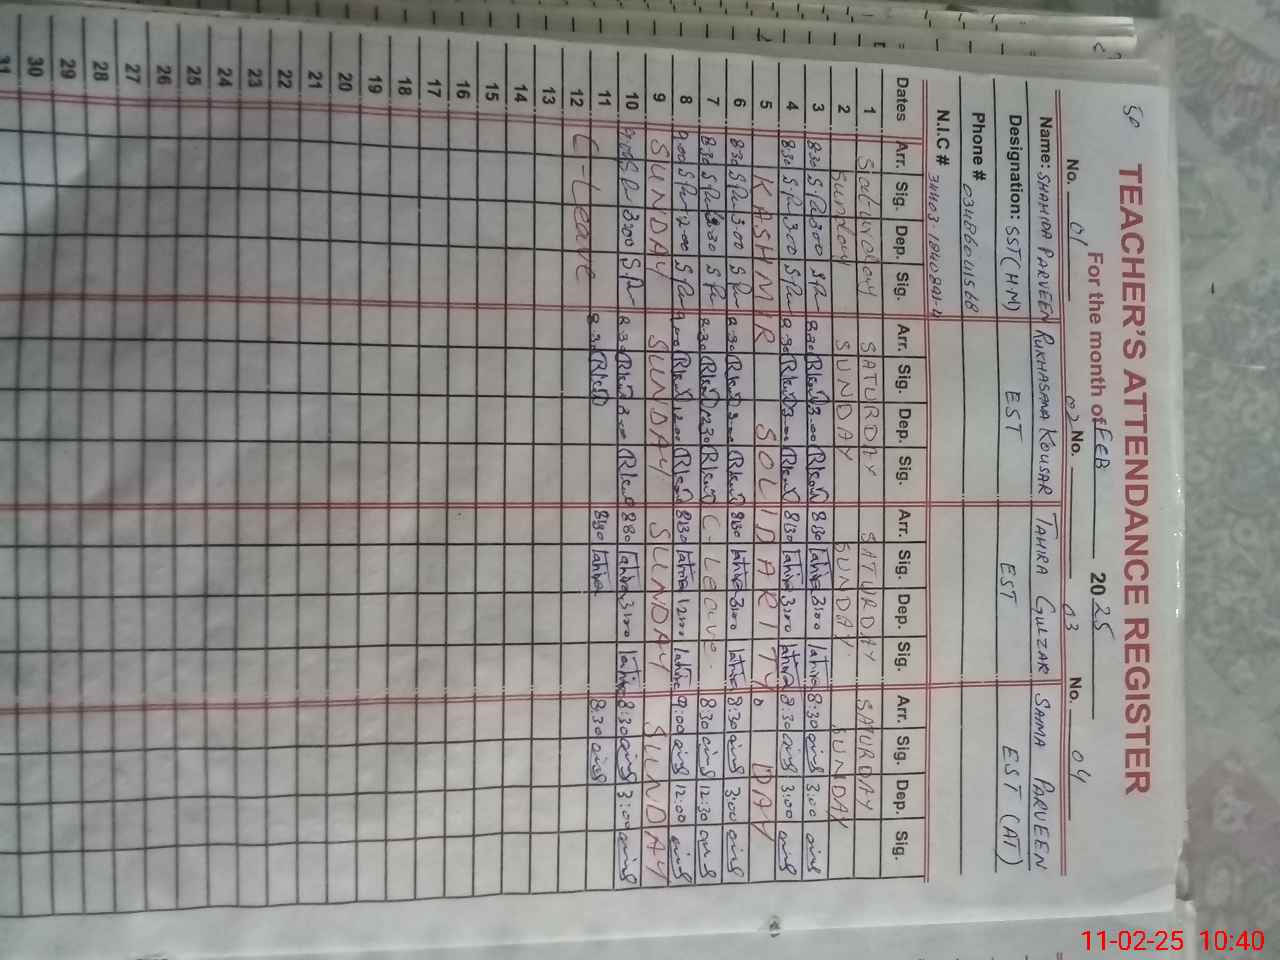 50
TEACHER'S ATTENDANCE REGISTER
For the month of FEB 2025
No. 01 02 No. 03 No. 04
Name: SHAHIDA PARVEEN RUKHASANA KOUSAR TAHIRA GULZAR SAIMA PARVEEN
Designation: SST(HM) EST EST EST (AT)
Phone # 03486041568
N.I.C #
Dates Arr. Sig. Dep. Sig. Arr. Sig. Dep. Sig. Arr. Sig. Dep. Sig. Arr. Sig. Dep. Sig.
1 Saturday SATURDAY SATURDAY SATURDAY
2 Sunday SUNDAY SUNDAY SUNDAY
3 8:30 3:00 8:30 3:00 8:30 tahira 3:00 tahira 8:30 3:00
4 8:30 3:00 8:30 3:00 8:30 tahira 3:00 tahira 8:30 3:00
5 KASHMIR SOLIDARITY DAY
6 8:30 3:00 8:30 3:00 8:30 tahira 3:00 tahira 8:30 3:00
7 8:30 12:30 8:30 12:30 C-Leave. 8:30 12:30
8 9:00 12:00 9:00 12:00 8:30 tahira 12:00 tahira 9:00 12:00
9 SUNDAY SUNDAY SUNDAY SUNDAY
10 3:00 8:30 3:00 8:30 tahira 3:00 tahira 8:30 3:00
11 C-Leave 8:30 8:30 tahira 8:30
12
13
14
15
16
17
18
19
20
21
22
23
24
25
26
27
28
29
30
31
11-02-25 10:40